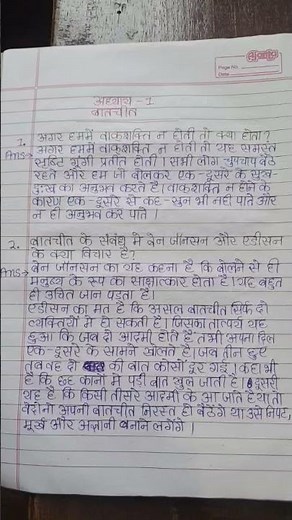 Page No.
Date
अध्याय - 1
बातचीत
1. अगर हममें वाक्शक्ति न होती तो क्या होता?
Ans→ अगर हममें वाक्शक्ति न होती तो यह समस्त
सृष्टि गूंगी प्रतीत होती। सभी लोग चुपचाप बैठे
रहते और हम जो बोलकर एक-दूसरे के सुख-
दुःख का अनुभव करते है। वाकशक्ति न होने के
कारण एक-दूसरे से कह-सुन भी नहीं पाते और
न ही अनुभव कर पाते।
2. बातचीत के संबंध में बेन जॉनसन और एडीसन
के क्या विचार है?
Ans→ बेन जॉनसन का यह कहना है कि बोलने से ही
मनुष्य के रूप का साक्षात्कार होता है। यह बहुत
ही उचित जान पड़ता है।
एडीसन का मत है कि असल बातचीत सिर्फ दो
व्यक्तियों में हो सकती है। जिसका तात्पर्य यह
हुआ कि जब दो आदमी होते हैं तभी अपना दिल
एक-दूसरे के सामने खोलते है। जब तीन हुए
तब वह दो की बात कोसों दूर गई। कहा भी
है कि छह कानों में पड़ी बात खुल जाती है। दूसरी
यह है कि किसी तीसरे आदमी के आ जाते ही या तो
वे दोनों अपनी बातचीत निरस्त हो बैठेंगे या उसे निपट
मूर्ख और अज्ञानी बनाने लगेंगे।